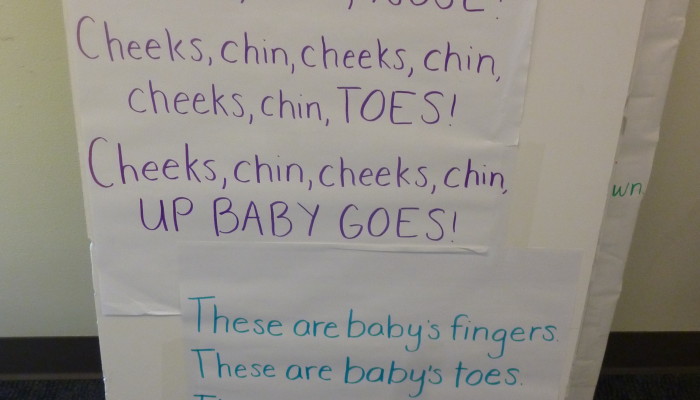 Cheeks, chin, cheeks, chin,
cheeks, chin, TOES!
Cheeks, chin, cheeks, chin,
UP BABY GOES!
wn.
These are baby's fingers.
These are baby's toes.